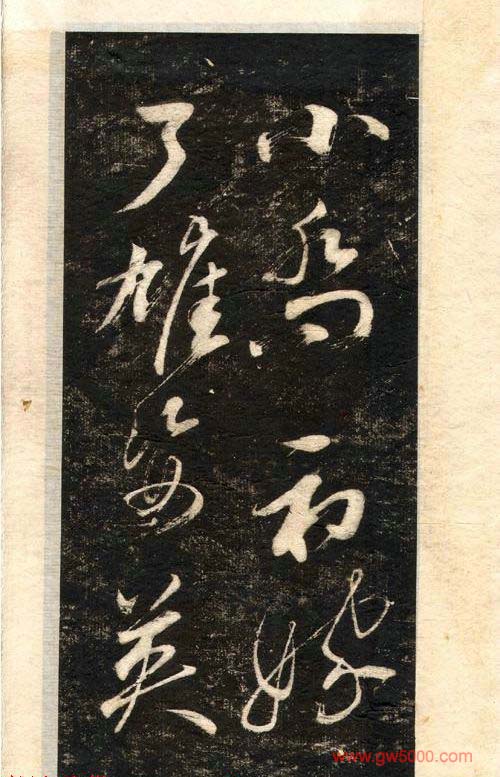 小喬初嫁
了雄姿英
www.gw5000.com